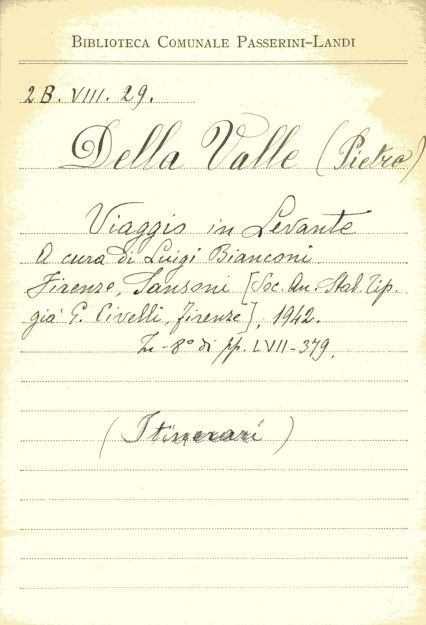 BIBLIOTECA COMUNALE PASSERINI-LANDI
2B. VIII. 29.
Della Valle (Pietro)
Viaggio in Levante
A cura di Luigi Bianconi
Firenze, Sansoni [Soc. An. Stab. Tip.
già G. Civelli, Firenze], 1942.
In-8° di pp. LVII-379.
(Itinerari)